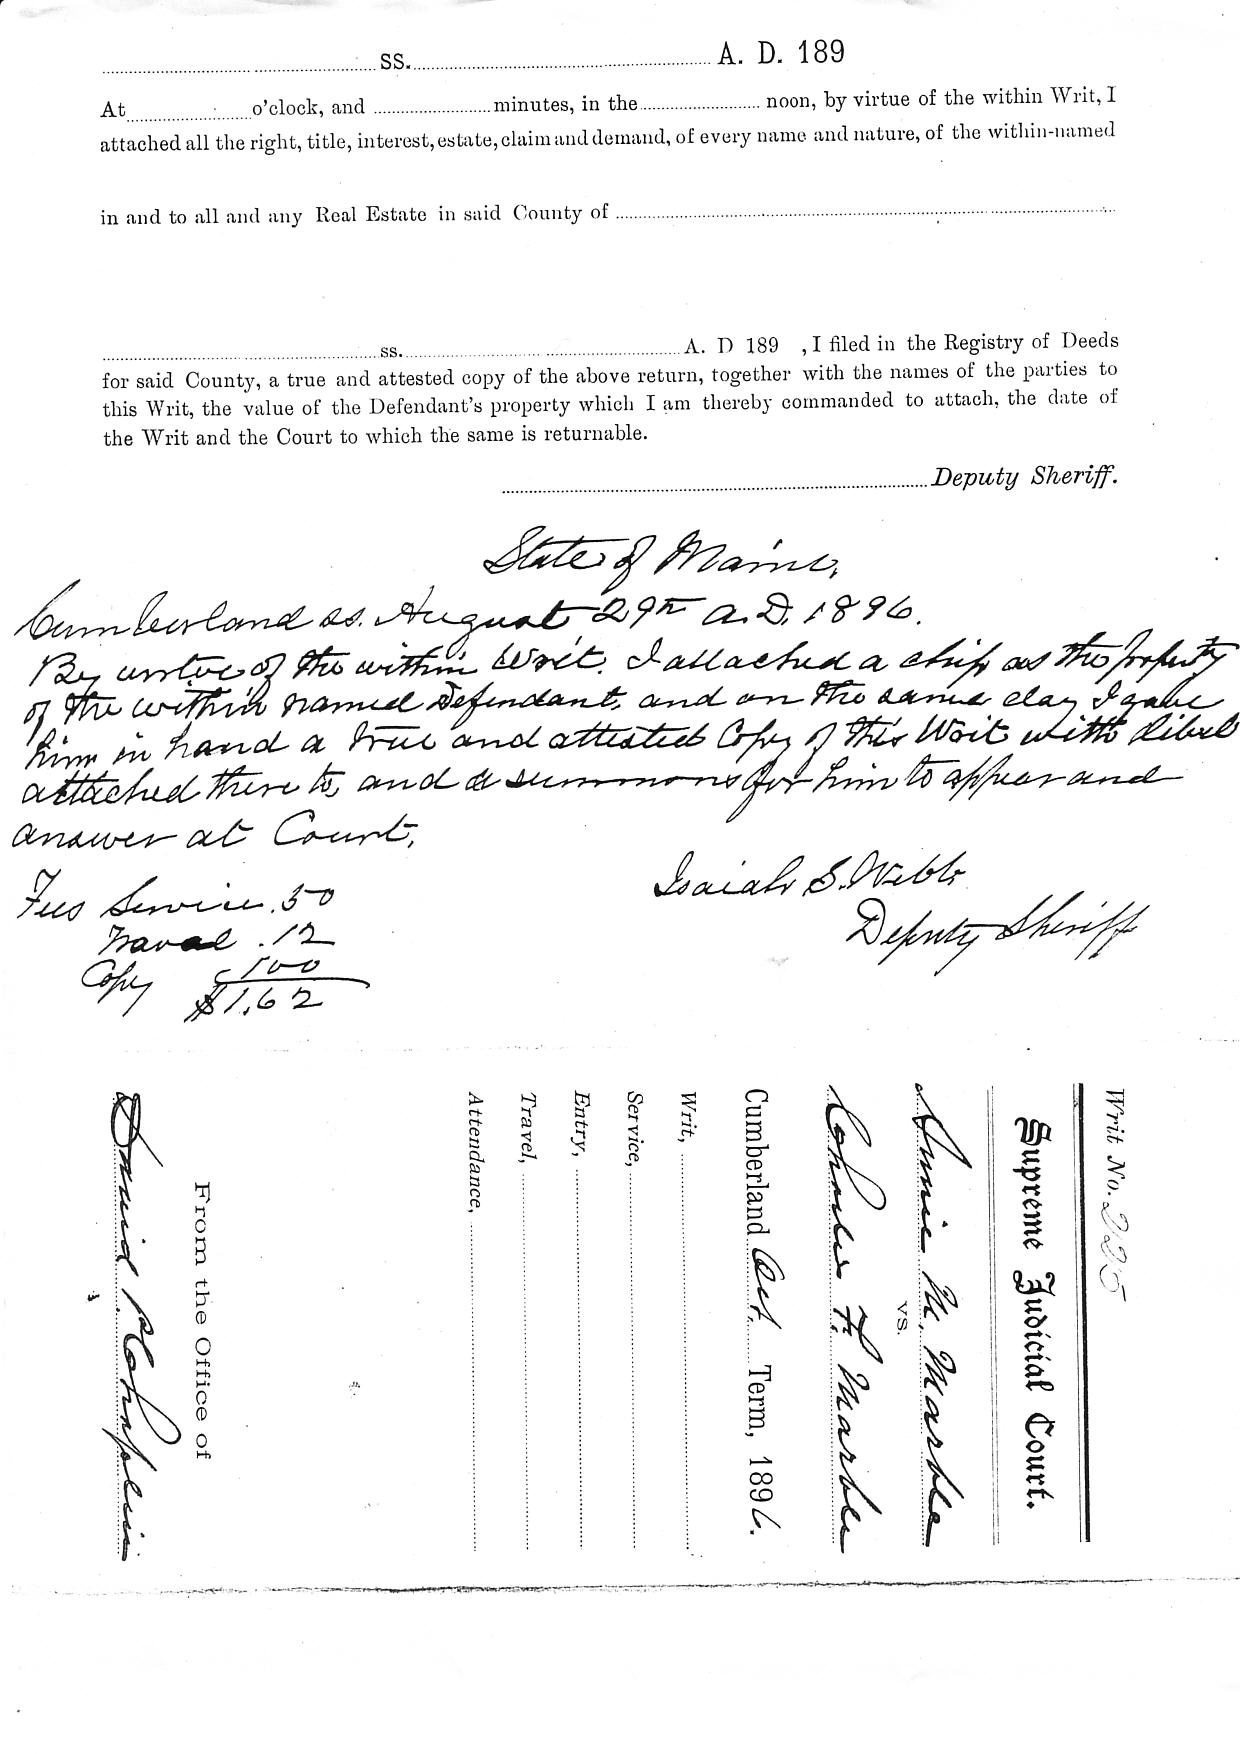 ss. A. D. 189
At o'clock, and minutes, in the noon, by virtue of the within Writ, I
attached all the right, title, interest, estate, claim and demand, of every name and nature, of the within-named
in and to all and any Real Estate in said County of
ss. A. D 189 , I filed in the Registry of Deeds
for said County, a true and attested copy of the above return, together with the names of the parties to
this Writ, the value of the Defendant's property which I am thereby commanded to attach, the date of
the Writ and the Court to which the same is returnable.
Deputy Sheriff.
State of Maine,
Cumberland ss. August 29th A.D. 1896.
By virtue of the within Writ, I attached a chip as the property
of the within named Defendant, and on the same day I gave
him in hand a true and attested Copy of this Writ with libel
attached there to, and a summons for him to appear and
answer at Court.
Isaiah S. Webb
Deputy Sheriff
Fees Service .50
Travel .12
Copy 100
$1.62
Writ No. 225
Supreme Judicial Court.
Annie M. Marble
vs.
F. Marble
Cumberland Oct. Term, 1896.
Writ,
Service,
Entry,
Travel,
Attendance,
From the Office of